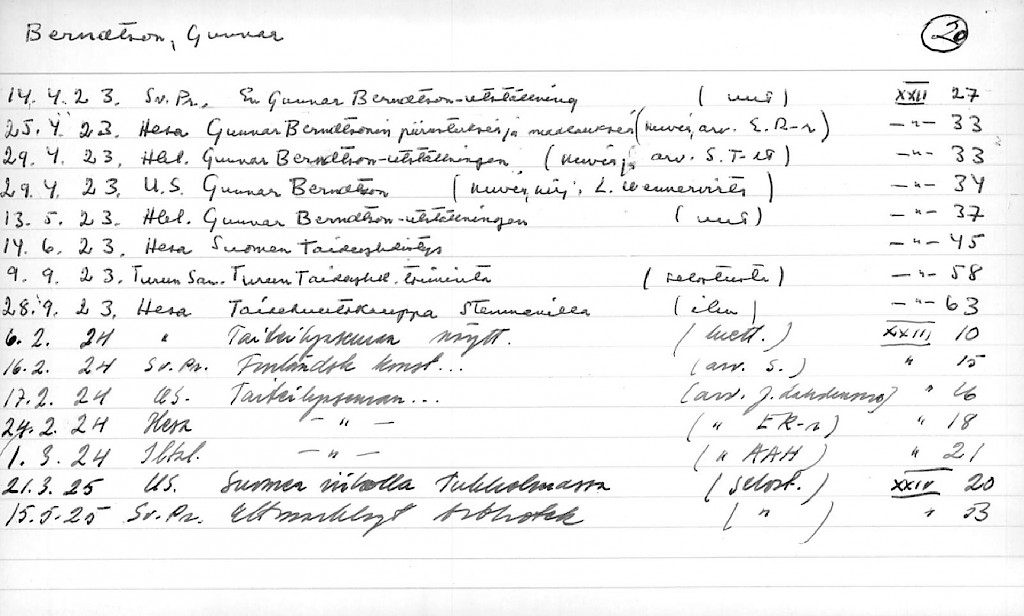 Berndtson, Gunnar 20
14. 4. 23. Sv. Pr. En Gunnar Berndtson-utställning ( uus ) XXII 27
25. 4. 23. Hesa Gunnar Berndtsonin piirustuksia ja maalauksia ( arv. E. R-r ) -"- 33
29. 4. 23. Hbl. Gunnar Berndtson-utställningen ( arv. S. T-st ) -"- 33
29. 4. 23. U.S. Gunnar Berndtson ( L. Wennervirta ) -"- 34
13. 5. 23. Hbl. Gunnar Berndtson-utställningen ( uus ) -"- 37
14. 6. 23. Hesa Suomen Taideyhdistys -"- 45
9. 9. 23. Turun San. Turun Taideyhd. toiminta ( selostusta ) -"- 58
28. 9. 23. Hesa Taidehuutokauppa Stenmanilla ( ilm ) -"- 63
6. 2. 24 " Taiteilijaseuran näytt. ( luett. ) XXIII 10
16. 2. 24 Sv. Pr. Finländsk konst... ( arv. S. ) " 15
17. 2. 24 US. Taiteilijaseuran... ( arv. J. Lehdensuo ) " 16
24. 2. 24 Hesa -"- ( " ER-r ) " 18
1. 3. 24 Iltal. -"- ( " AAH ) " 21
21. 3. 25 US. Suomen viikolla Tukholmassa ( selost. ) XXIV 20
15. 5. 25 Sv. Pr. Ett märkligt bibliotek ( " ) " 53